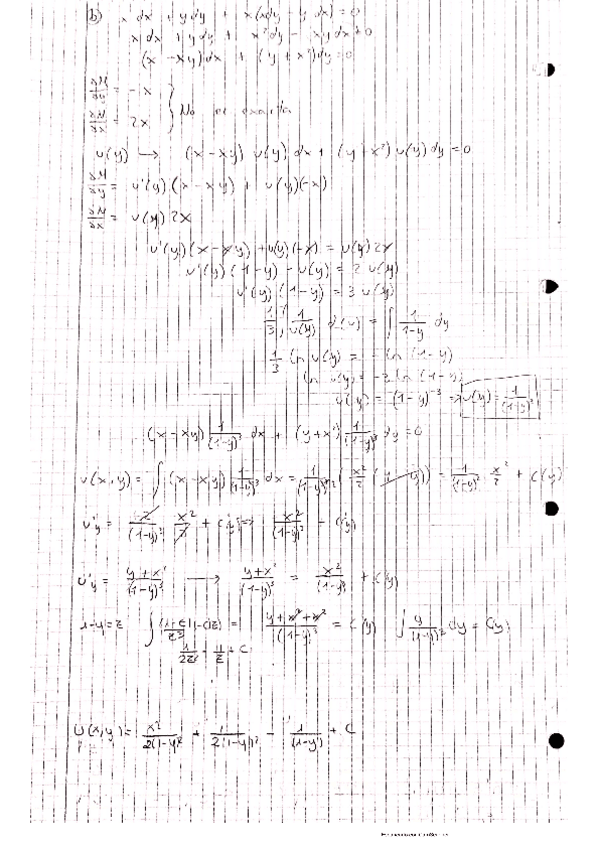 b) x dx + y dy + x(x dy - y dx) = 0
x dx + y dy + x² dy - xy dx = 0
(x - xy) dx + (y + x²) dy = 0
∂M/∂y = -x
∂N/∂x = 2x } No es exacta
u(y) → (x - xy) u(y) dx + (y + x²) u(y) dy = 0
∂M/∂y = u'(y) (x - xy) + u(y)(-x)
∂N/∂x = u(y) 2x
u'(y)(x - xy) + u(y)(-x) = u(y) 2x
u'(y)(1-y) - u(y) = 2 u(y)
u'(y)(1-y) = 3 u(y)
1/3 ∫ 1/u(y) d(u) = ∫ 1/(1-y) dy
1/3 ln u(y) = - ln(1-y)
ln u(y) = -3 ln(1-y)
u(y) = (1-y)⁻³ ⇒ u(y) = 1/(1-y)³
(x - xy) 1/(1-y)³ dx + (y + x²) 1/(1-y)³ dy = 0
u(x,y) = ∫ (x - xy) 1/(1-y)³ dx = 1/(1-y)² x²/2 + C(y)
u'y = 2/(1-y)³ x²/2 + C'(y) ⇒ x²/(1-y)³ + C'(y)
u'y = y + x²/(1-y)³ → y + x²/(1-y)³ = x²/(1-y)³ + C'(y)
1-y = z
U(x,y) = x²/2(1-y)² + 1/2(1-y)² - 1/(1-y) + C